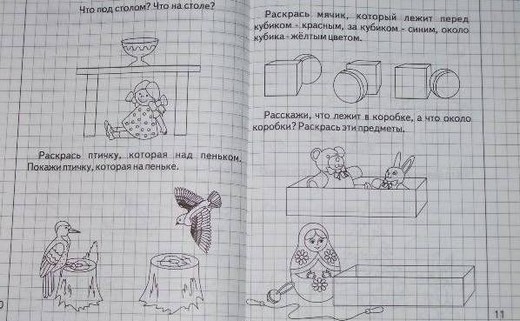 Что под столом? Что на столе?
Раскрась птичку, которая над пеньком.
Покажи птичку, которая на пеньке.
Раскрась мячик, который лежит перед
кубиком - красным, за кубиком - синим, около
кубика - жёлтым цветом.
Расскажи, что лежит в коробке, а что около
коробки? Раскрась эти предметы.
11